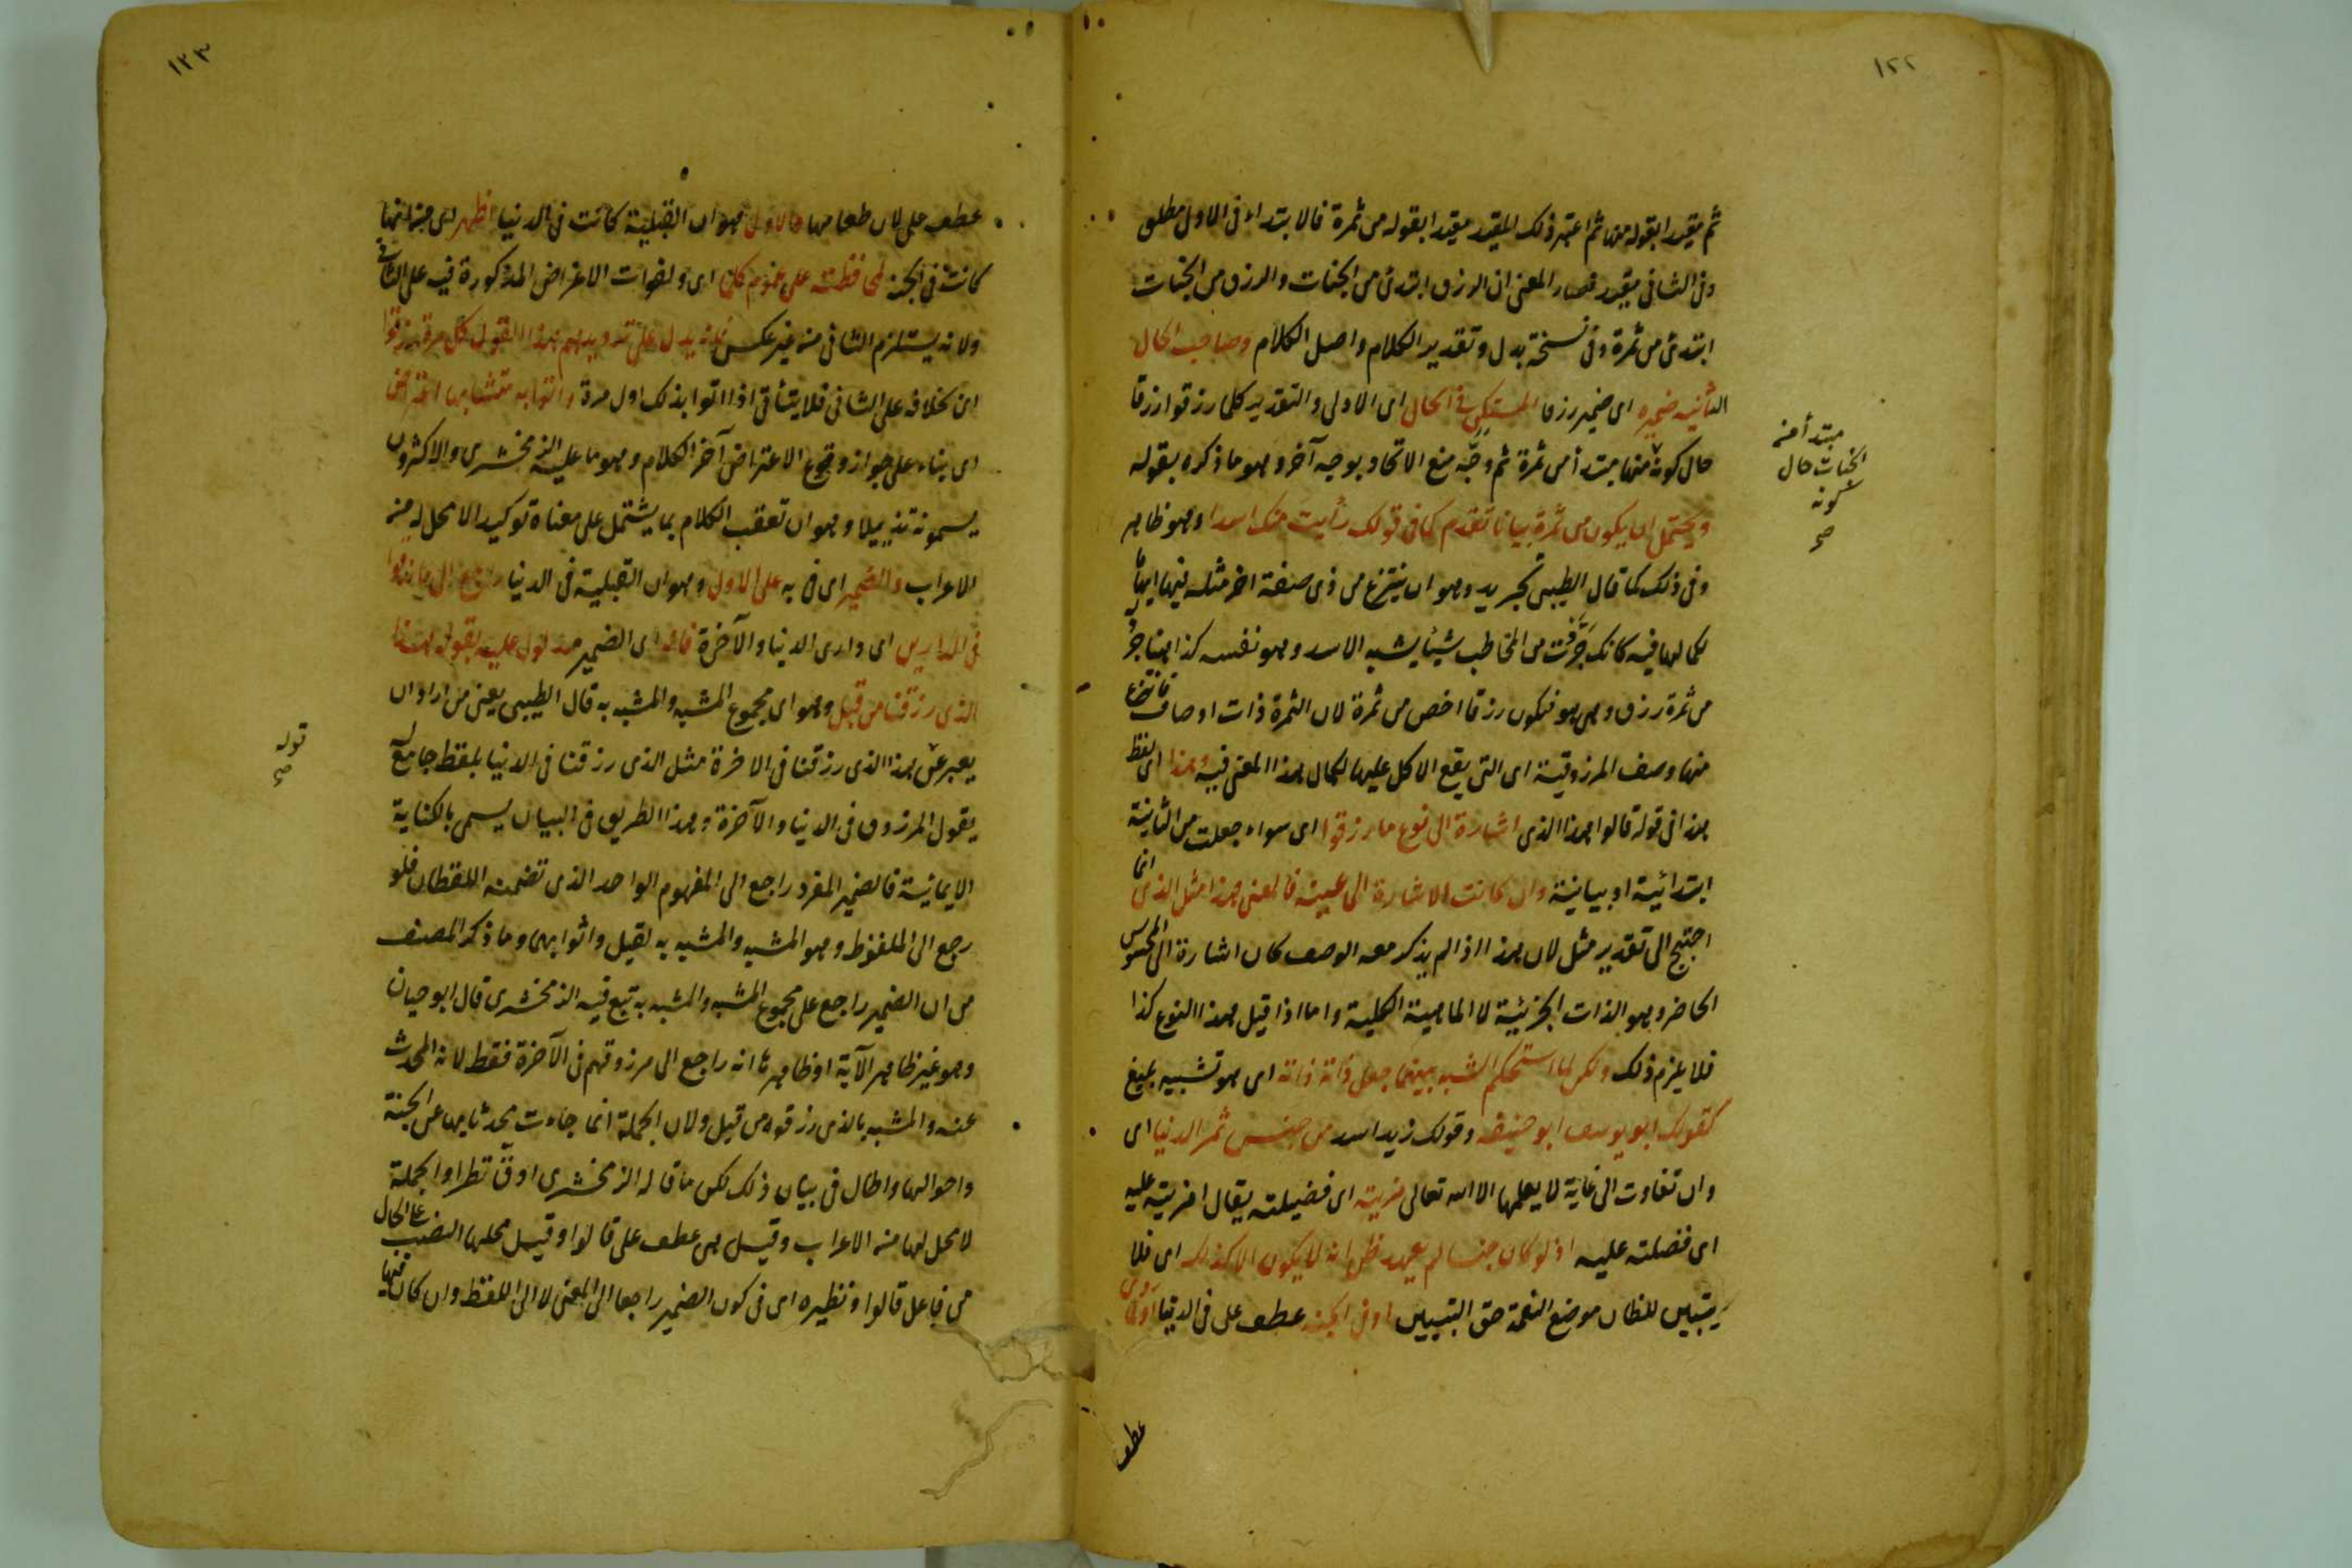 ١٢٢
ثم مقيدا بقوله منها ثم اعتبر ذلك المقيد مقيدا بقوله من ثمرة فالابتداء في الاول مطلق
وفي الثاني مقيد فصار المعنى ان الرزق ابتدئ من الجنات والرزق من الجنات
ابتدئ من ثمرة وفي نسخة بدل وتقدير الكلام واصل الكلام وصاحب الحال
الثانية ضميره اي ضمير رزقا المستكن في الحال اي الاولى والتقدير كلما رزقوا رزقا
حال كونه منها مبتدأ من ثمرة ثم وجّه منع الاتحاد بوجه آخر وهو ما ذكره بقوله
مبتدأ من
الجنات حال
كونه
صح
ويحتمل ان يكون من ثمرة بيانا تقدم كما في قولك رأيت منك اسدا وهو ظاهر
وفي ذلك كما قال الطيبي تجريد وهو ان ينتزع من ذي صفة اخر مثله فيها ايهاما
لكمالها فيه كانك جرّدت من المخاطب شيئا يشبه الاسد وهو نفسه كذا هنا جرد
من ثمرة رزق وهي هو فيكون رزقا اخص من ثمرة لان الثمرة ذات اوصاف فانتزع
منها وصف المرزوقية اي التي يقع الاكل عليها لكمال هذا المعنى فيه وهذا اي لفظ
هذا في قوله قالوا هذا الذي اشارة الى نوع ما رزقوا اي سواء جعلت من الثانية
ابتدائية او بيانية وان كانت الاشارة الى عينه فالمعنى هذا مثل الذي انما
احتيج الى تقدير مثل لان هذا اذا لم يذكر معه الوصف كان اشارة الى المحسوس
الحاضر وهو الذات الجزئية لا الماهية الكلية واما اذا قيل هذا النوع كذا
فلا يلزم ذلك ولكن لما استحكم الشبه بينهما جعل ذاته ذاته اي هو تشبيه بليغ
كقولك ابو يوسف ابو حنيفة وقولك زيد اسد من جنس ثمر الدنيا اي
وان تفاوت الى غاية لا يعلمها الا الله تعالى مزيته اي فضيلته يقال امزيته عليه
اي فضلته عليه اذ لو كان جنسا لم يعهد ظن انه لا يكون الا كذلك اي فلا
يتبين للظان موضع النعمة حق التبيين او في الجنة عطف على في الدنيا
عطف
١٢٣
عطف على لان طعامها والاول وهو ان القبلية كانت في الدنيا اظهر اي من انها
كانت في الجنة لمحافظته على عموم كلما اي ولفوات الاغراض المذكورة فيه على الثاني
ولانه يستلزم الثاني من غير عكس فانه يدل على ترديدهم هذا القول كل مرة رزقوا
اي بخلافه على الثاني فلا يتأتى اذا اتوا بذلك اول مرة واتوا به متشابها اعتراض
اي بناء على جواز وقوع الاعتراض آخر الكلام وهو ما عليه الزمخشري والاكثرون
يسمونه تذييلا وهو ان تعقب الكلام بما يشتمل على معناه توكيدا لا محل له من
الاعراب والضمير اي في به على الاول وهو ان القبلية في الدنيا راجع الى ما رزقوا
في الدارين اي داري الدنيا والآخرة فانه اي الضمير مدلول عليه بقوله هذا
الذي رزقنا من قبل وهو اي مجموع المشبه والمشبه به قال الطيبي يعني من اراد ان
يعبر عن هذا الذي رزقنا في الاخرة مثل الذي رزقنا في الدنيا بلفظ جامع له
قوله
صح
يقول المرزوق في الدنيا والآخرة وهذا الطريق في البيان يسمى بالكناية
الايمائية فالضمير المفرد راجع الى المفهوم الواحد الذي تضمنه اللفظان فلو
رجع الى الملفوظ وهو المشبه والمشبه به لقيل واتوا بهما وما ذكر المصنف
من ان الضمير راجع على مجموع المشبه والمشبه به تبع فيه الزمخشري قال ابو حيان
وهو غير ظاهر الآية اذ ظاهرها انه راجع الى مرزوقهم في الآخرة فقط لانه المحدث
عنه والمشبه بالذي رزقوه من قبل ولان الجملة انما جاءت محدثا بها عن الجنة
واحوالها واطال في بيان ذلك لكن ما قاله الزمخشري ادق نظرا والجملة
لا محل لها من الاعراب وقيل هي عطف على قالوا وقيل محلها النصب على الحال
من فاعل قالوا ونظيره اي في كون الضمير راجعا الى المعنى لا الى اللفظ وان كان فيها